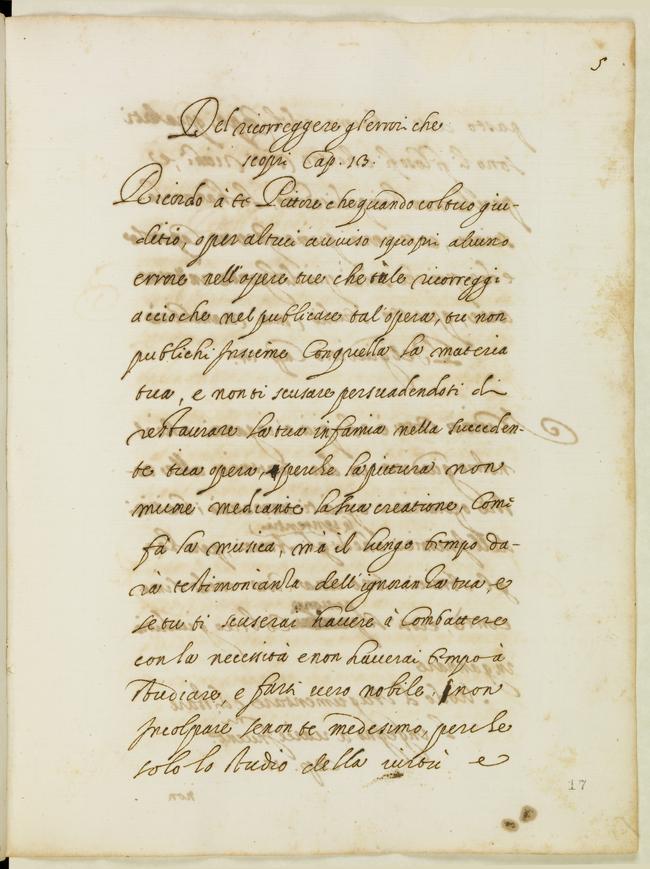 5
Del ricorreggere gl'errori che
scopri Cap. 13.
Ricordo à te Pittore che quando col tuo giu-
ditio, o per altrui auuiso scuopri alcuno
errore nell'opere tue che tù le ricorreggi
accioche nel publicare tal'opera, tu non
publichi insieme Con quella la materia
tua, e non ti scusare persuadendoti di
restaurare la tua infamia nella succeden-
te tua opera, perche la pittura non
muore mediante la sua creatione, Come
fà la musica, mà il lungo tempo da-
rà testimonianza dell'ignoranza tua, e
se tu ti scuserai hauere à Combattere
con la necessità e non hauerai tempo à
studiare, e farti uero nobile, non
incolpare se non te medesimo, perche
solo lo studio della uirtù e
17